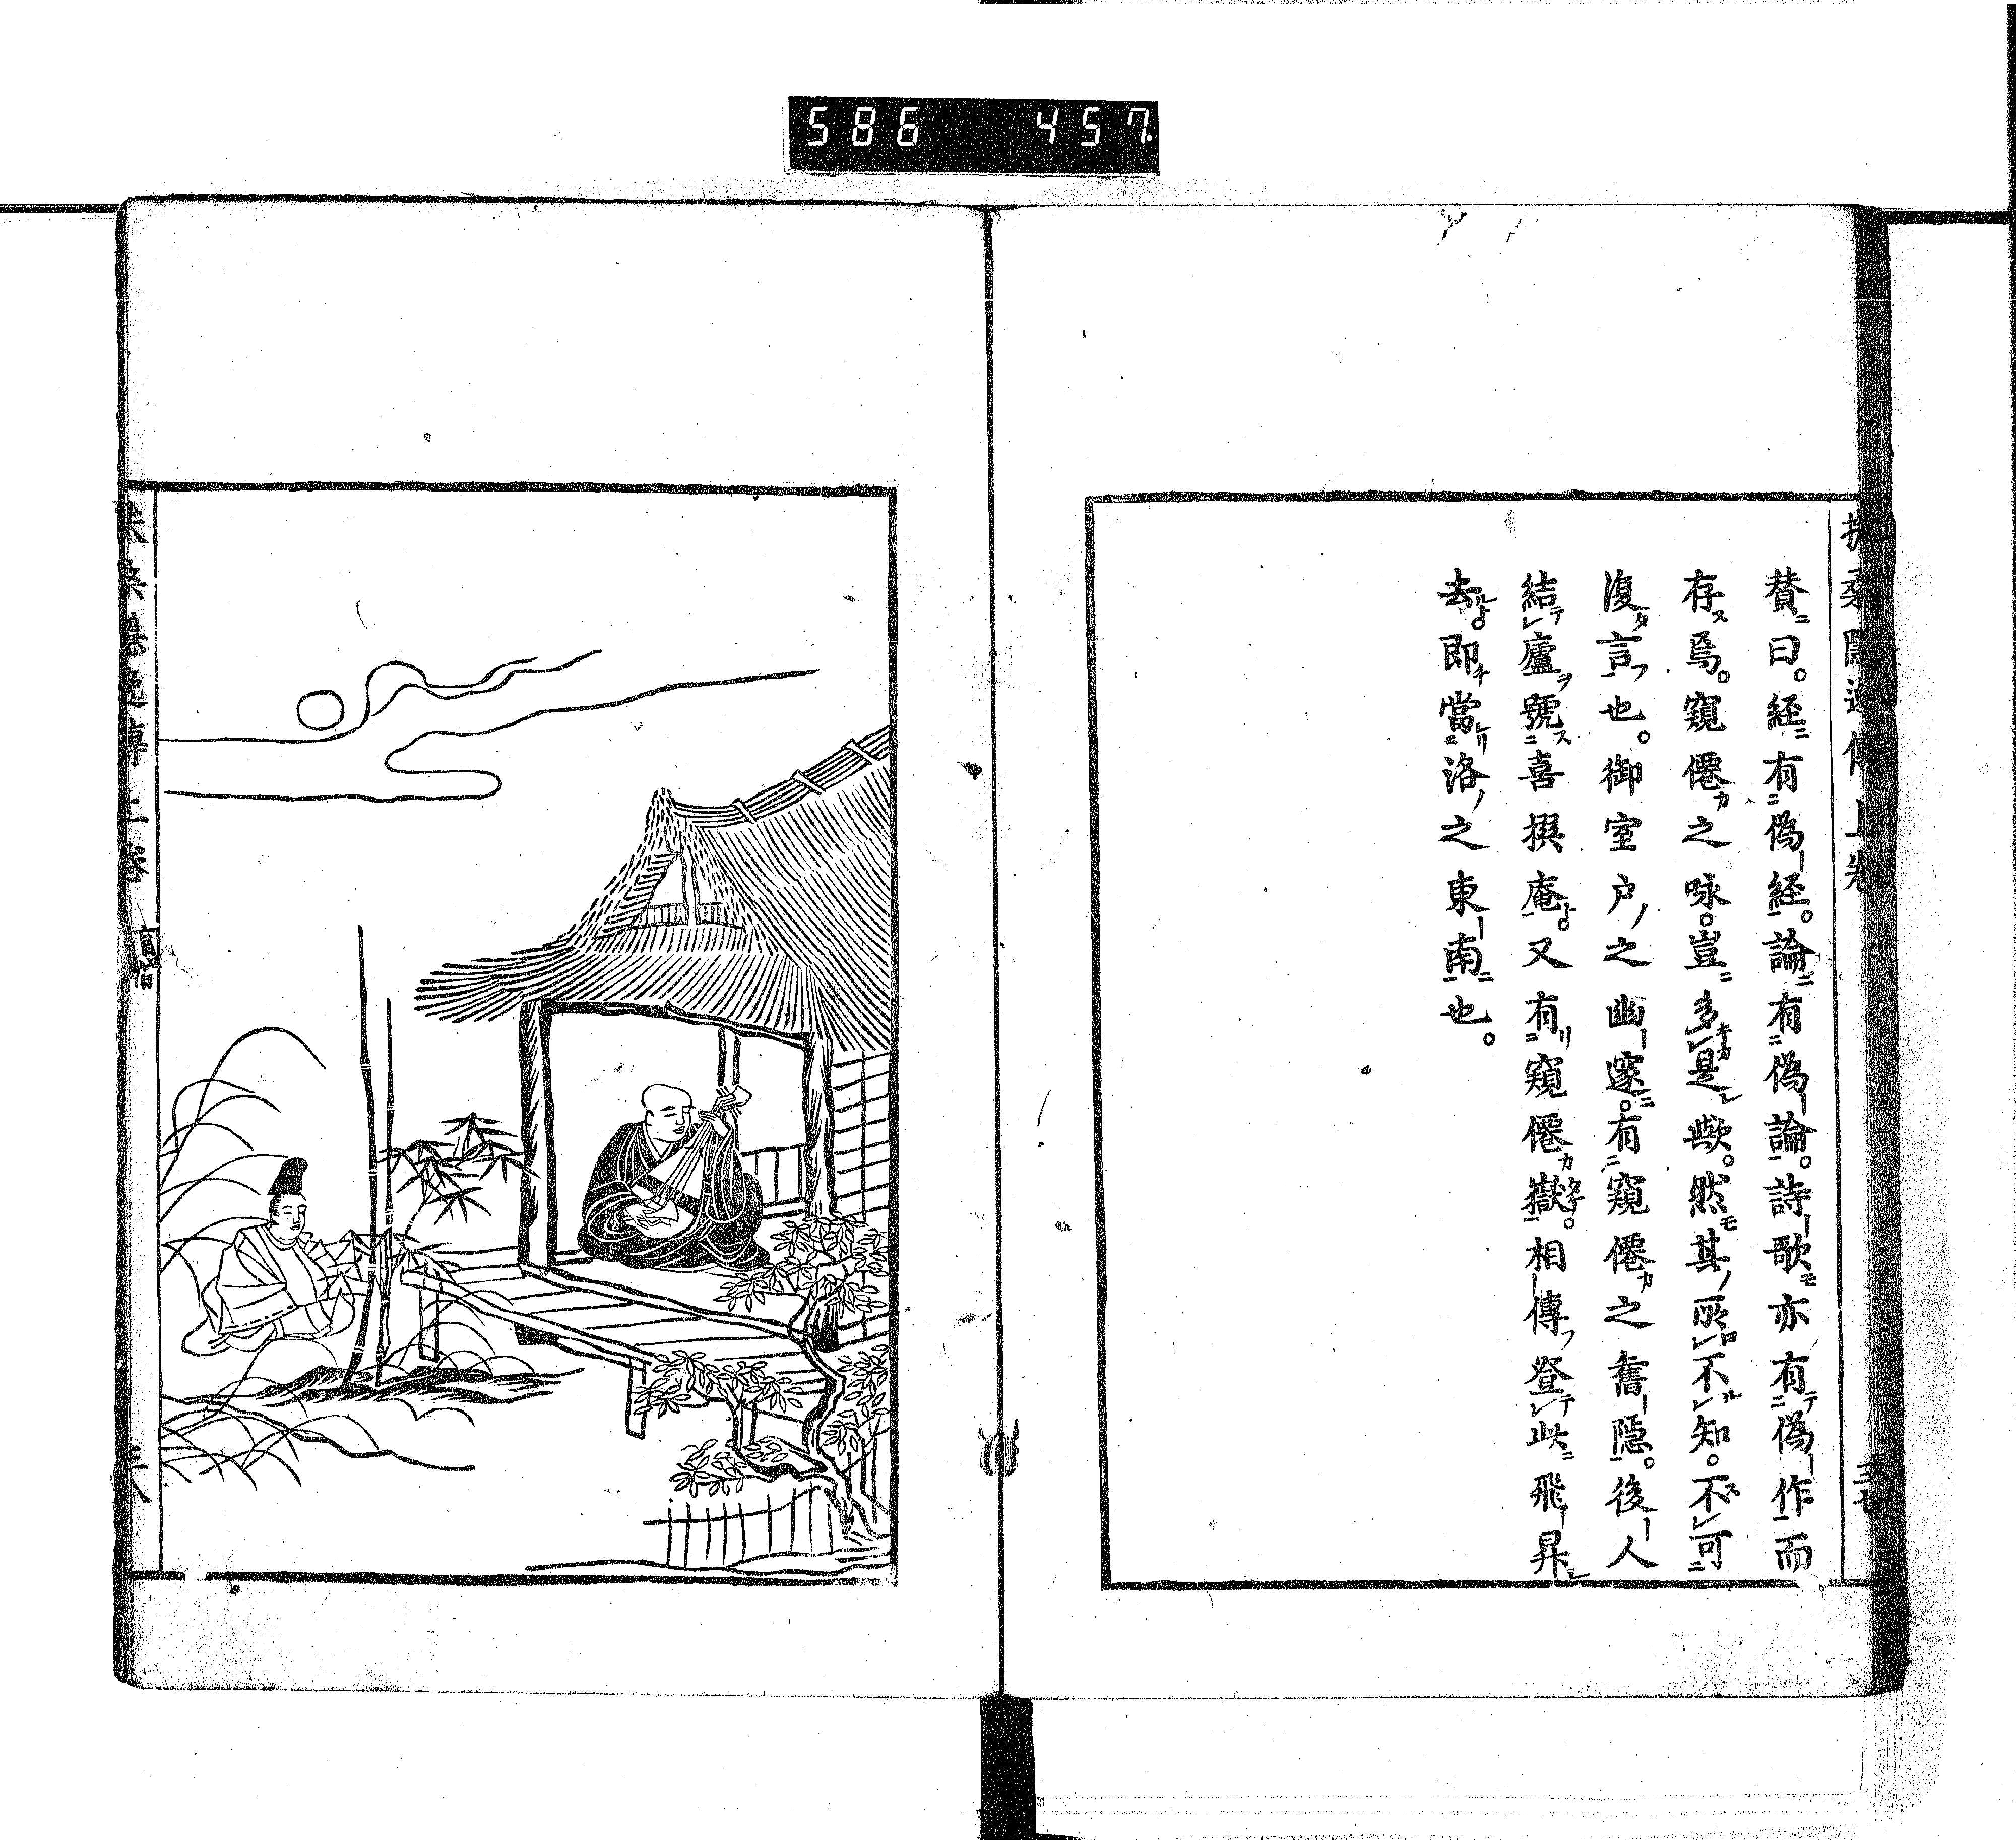 586 457
扶桑隠逸傳上巻 三七
賛曰。経有偽経。論有偽論。詩歌亦有偽作而
存焉。窺僊之咏。豈多是歟。然其所不知。不可
復言也。御室戸之幽邃。有窺僊之舊隠。後人
結廬號喜撰庵。又有窺僊嶽。相傳登此飛昇
去。即當洛之東南也。
扶桑隠逸傳上巻